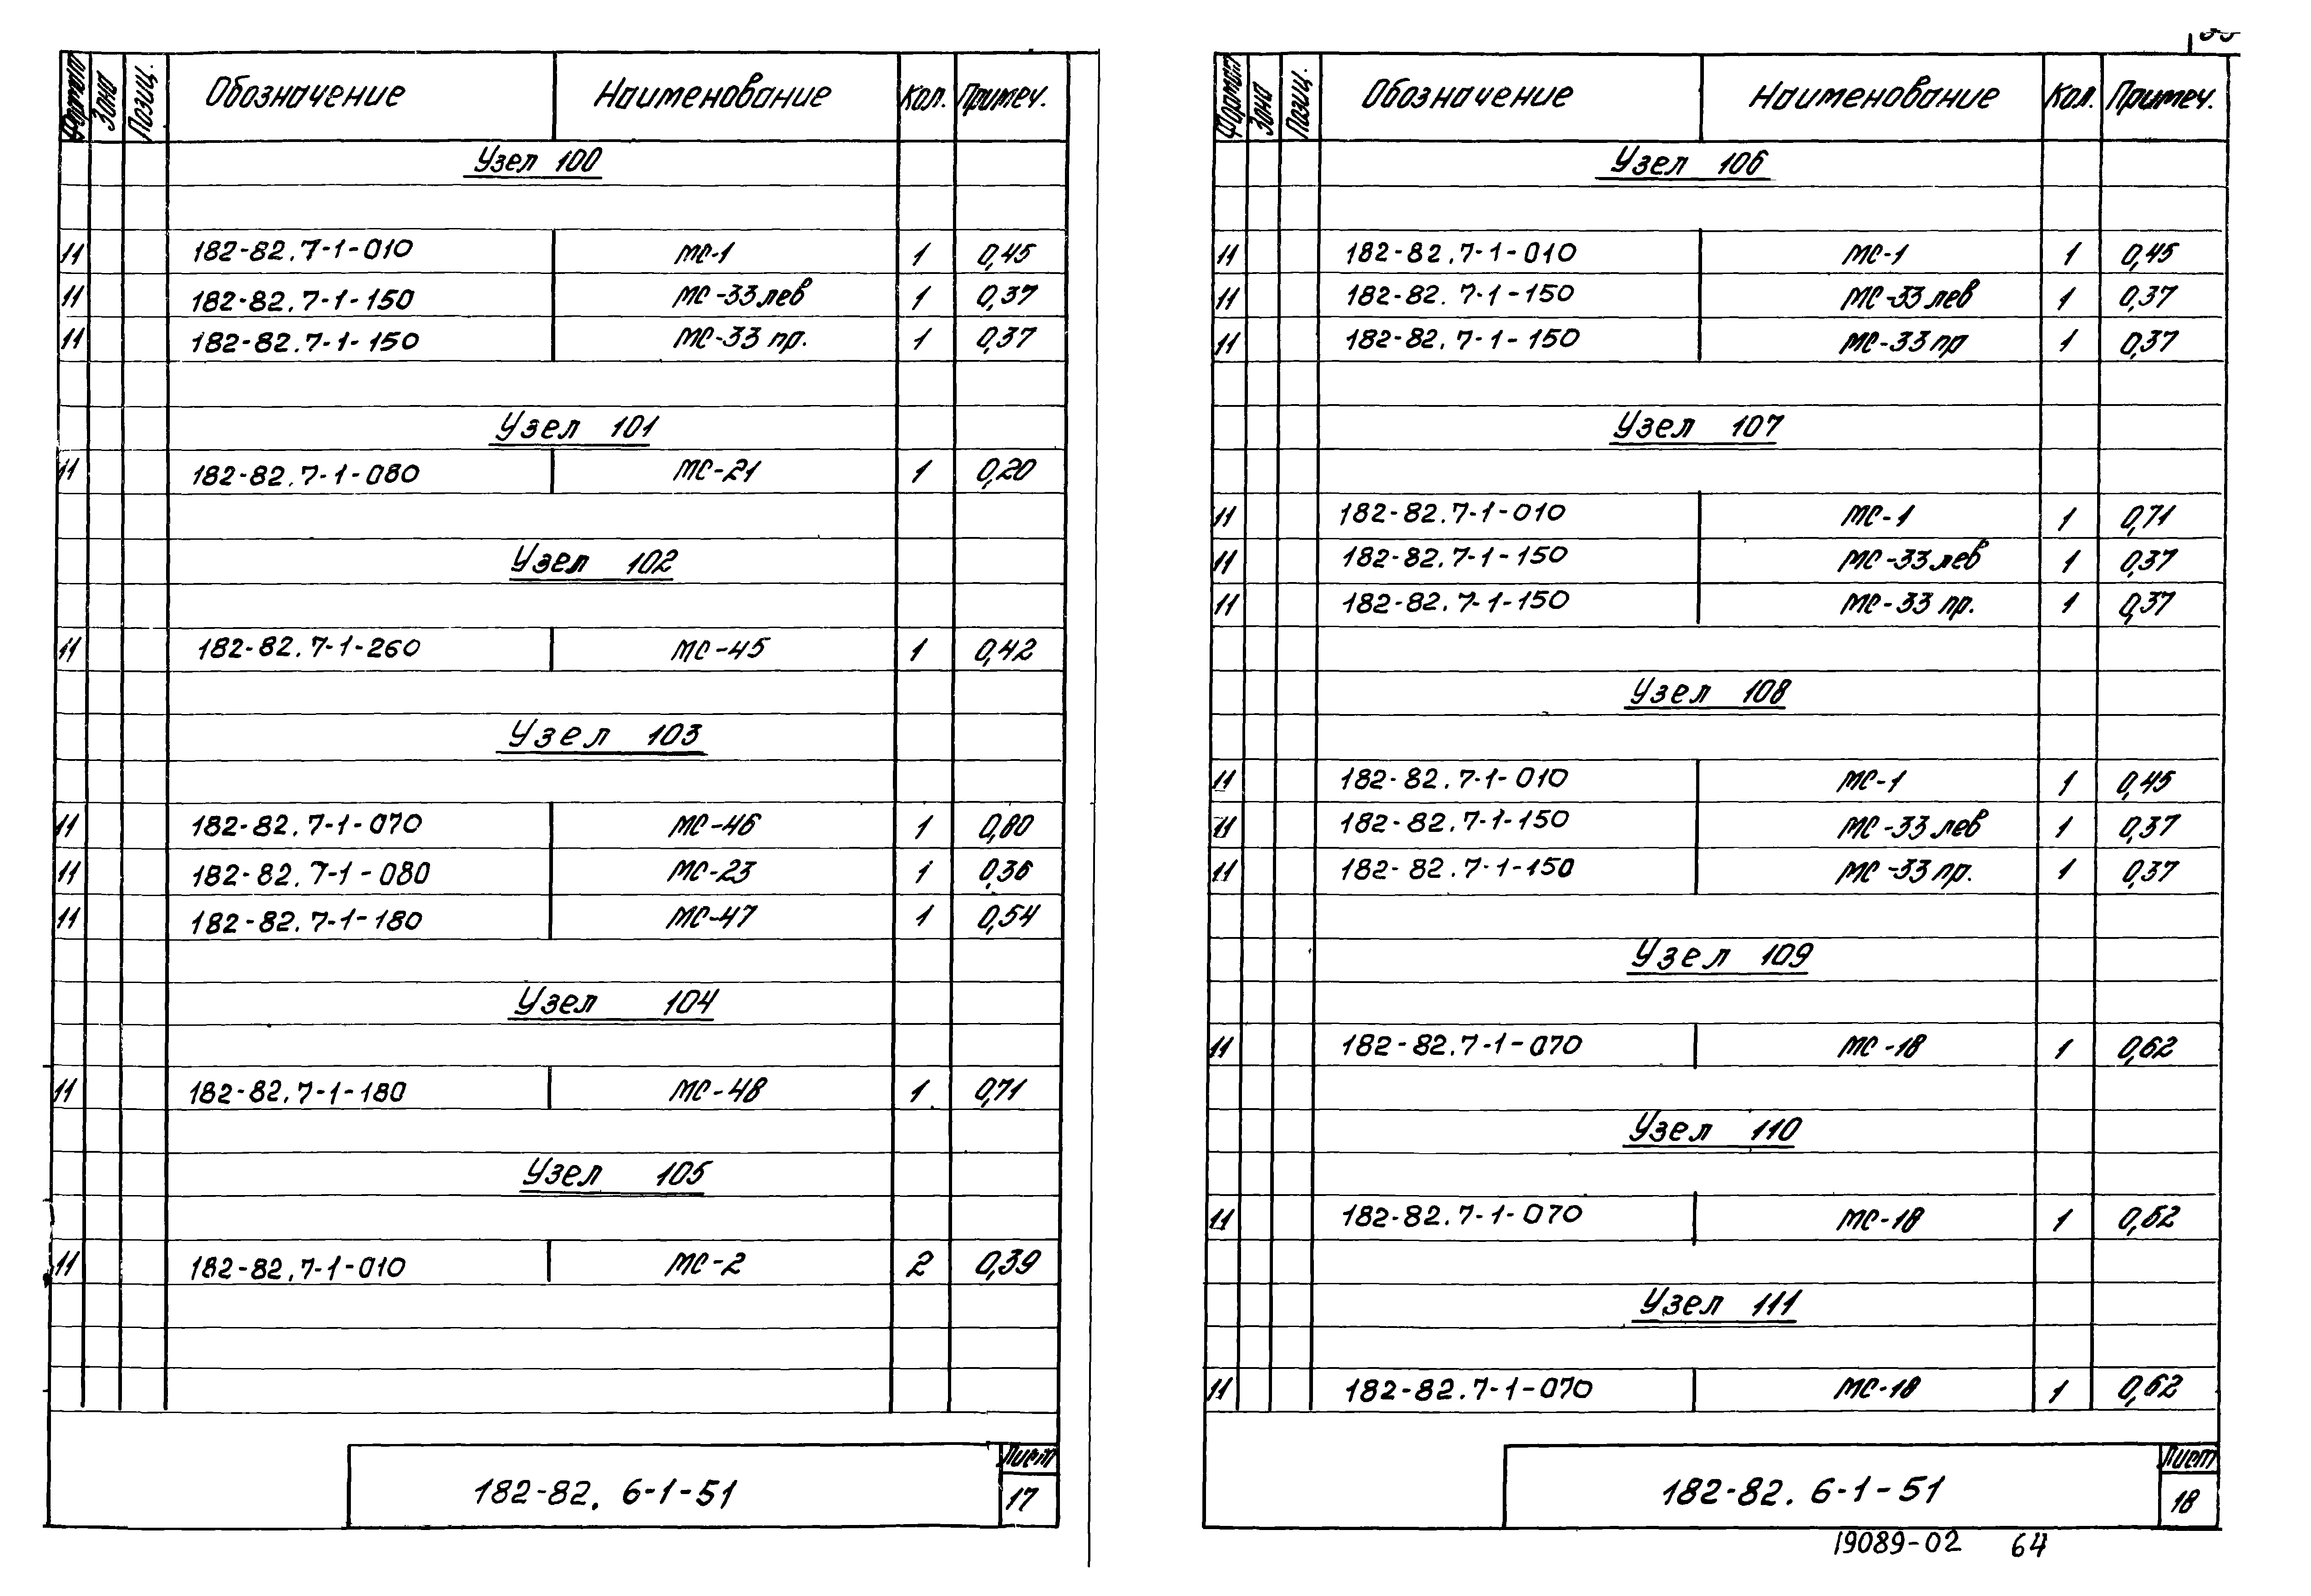 Формат Зона Позиц. Обозначение Наименование Кол. Примеч.
Узел 100
11 182-82.7-1-010 МС-1 1 0,45
11 182-82.7-1-150 МС-33лев 1 0,37
11 182-82.7-1-150 МС-33 пр. 1 0,37
Узел 101
11 182-82.7-1-080 МС-21 1 0,20
Узел 102
11 182-82.7-1-260 МС-45 1 0,42
Узел 103
11 182-82.7-1-070 МС-46 1 0,80
11 182-82.7-1-080 МС-23 1 0,36
11 182-82.7-1-180 МС-47 1 0,54
Узел 104
11 182-82.7-1-180 МС-48 1 0,71
Узел 105
11 182-82.7-1-010 МС-2 2 0,39
182-82. 6-1-51
Лист
17
Формат Зона Позиц. Обозначение Наименование Кол. Примеч.
Узел 106
11 182-82.7-1-010 МС-1 1 0,45
11 182-82.7-1-150 МС-33 лев 1 0,37
11 182-82.7-1-150 МС-33 пр 1 0,37
Узел 107
11 182-82.7-1-010 МС-1 1 0,71
11 182-82.7-1-150 МС-33лев 1 0,37
11 182-82.7-1-150 МС-33 пр. 1 0,37
Узел 108
11 182-82.7-1-010 МС-1 1 0,45
11 182-82.7-1-150 МС-33 лев 1 0,37
11 182-82.7-1-150 МС-33 пр. 1 0,37
Узел 109
11 182-82.7-1-070 МС-18 1 0,62
Узел 110
11 182-82.7-1-070 МС-18 1 0,62
Узел 111
11 182-82.7-1-070 МС-18 1 0,62
182-82. 6-1-51
Лист
18
19089-02 64